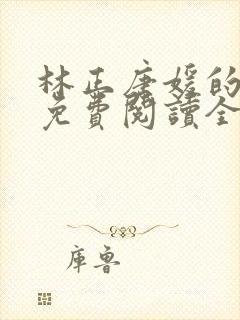 林正唐媛的
免費閱讀全
庫魯